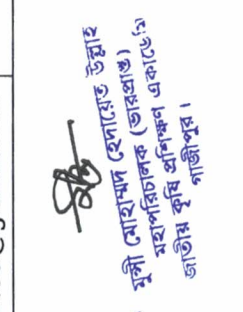 মুন্সী মোহাম্মদ হেদায়েত উল্লাহ
মহাপরিচালক (ভারপ্রাপ্ত)
জাতীয় কৃষি প্রশিক্ষণ একাডেমি
গাজীপুর।